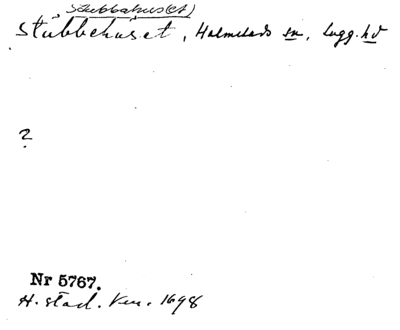 Stubbahus(et)
Stubbehuset, Halmstads sn, Lugg. hd
?
Nr 5767.
H. städ. Ven. 1698